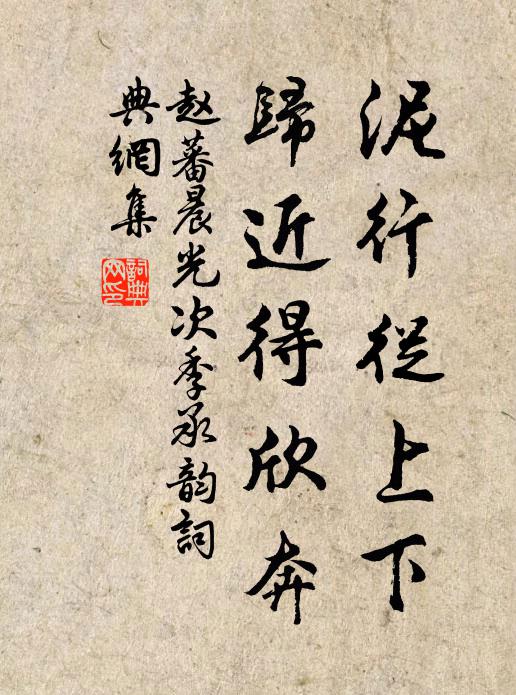 泥行從上下
歸近得欣奔
赵蕃晨光次季承韵詞
典網集
詞典
网印